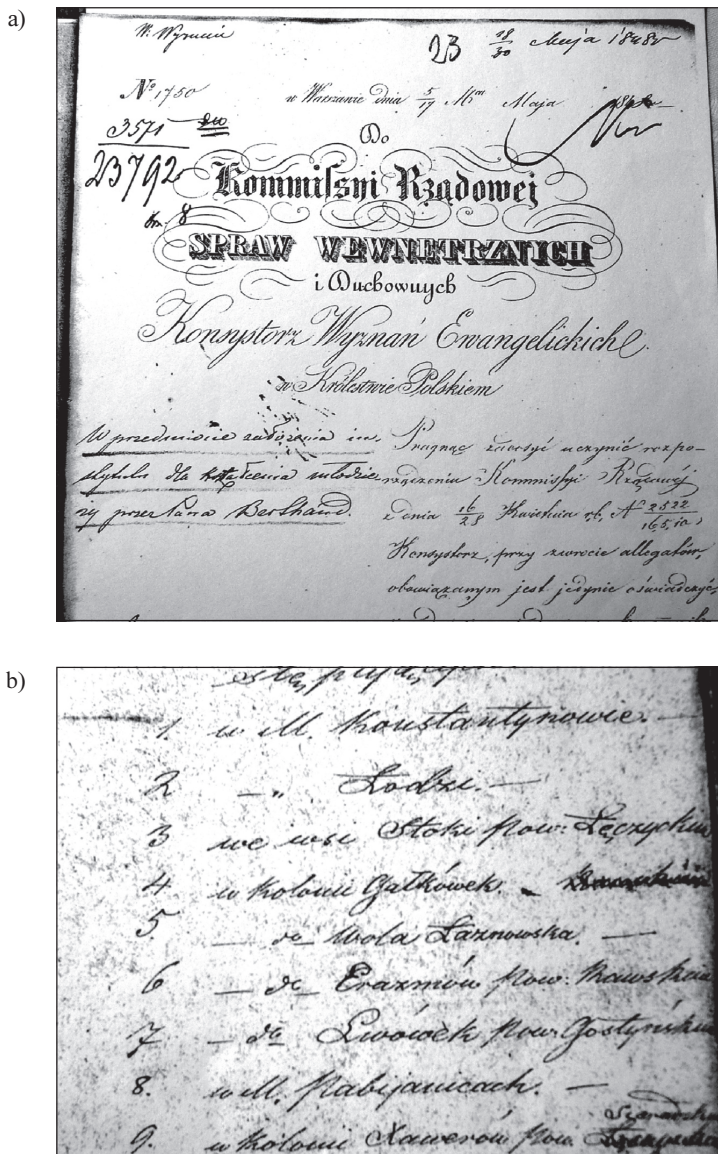 a)
W. Wyznań
23 18/30 Maja 1848
№ 1750
w Warszawie dnia 5/17 Maja
3571
23792
Do
Kommissyi Rządowej
SPRAW WEWNETRZNICH
i Duchownych
Konsystorz Wyznań Ewangelickich
w Królestwie Polskiem
W przedmiocie założenia in-
stytutu dla kształcenia młodzie-
ży przez Pana
Pragnąc zadosyć uczynić rozpo-
rządzeniu Kommissyi Rządowéj
z dnia 16/28 Kwietnia rb. № 2522/165,10,
Konsystorz, przy zwrocie allegatów,
obowiązanym jest jedynie oświadczyć,
b)
1. w M. Konstantynowie. —
2 — „ Łodzi. —
3 we wsi Stoki pow: Łęczyckim
4 w kolonii Gałkówek. -
5. — do Wola Łaznowska. —
6 — do Erazmów pow: Rawskim
7 — do Lwówek pow: Gostyńskim
8. w M. Pabijanicach. —
9. w kolonii Xawerów pow.